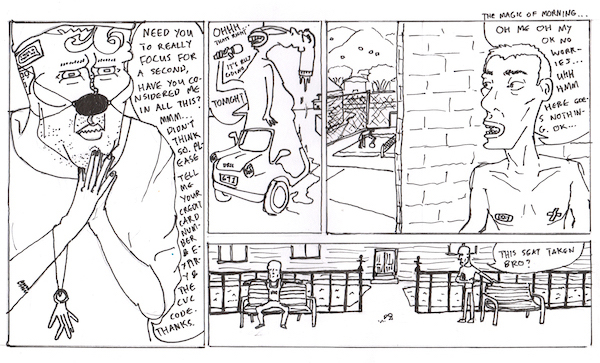 NEED YOU
TO REALLY
FOCUS FOR
A SECOND,
HAVE YOU CO-
NSIDERED ME
IN ALL THIS?
MMM..
DIDN'T
THINK
SO. PL-
EASE
TELL
ME
YOUR
CREDIT
CARD
NUM-
BER
& E-
XPIR-
Y &
THE
CVC
CODE.
THANKS.
OHHH..
THATS RIGHT...
IT'S BILLY
TONIGHT
THE MAGIC OF MORNING...
OH ME OH MY
OK NO
WORR-
IES...
UHH
HMM
HERE GOE-
S NOTHIN-
G. OK...
THIS SEAT TAKEN
BRO?